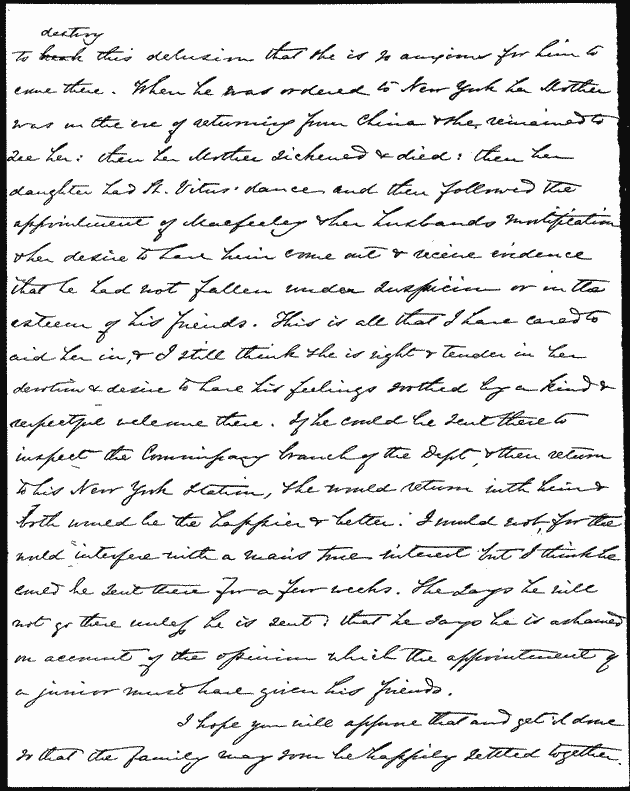 destroy
to break this delusion that she is so anxious for him to
come there. When he was ordered to New York her Mother
was on the eve of returning from China & she remained to
see her: then her Mother sickened & died: then her
daughter had St. Vitus' dance and then followed the
appointment of Macfeeley & her husbands mortification
& her desire to have him come out & receive evidence
that he had not fallen under suspicion or in the
esteem of his friends. This is all that I have cared to
aid her in, & I still think she is right & tender in her
devotion & desire to have his feelings soothed by a kind &
respectful welcome there. If he could be sent there to
inspect the Commissary branch of the Dept, & then return
to his New York Station, she would return with him &
both would be the happier & better. I would not, for the
world interfere with a man's true interest but I think he
could be sent there for a few weeks. She says he will
not go there unless he is sent: that he says he is ashamed
on account of the opinion which the appointment of
a junior must have given his friends.
I hope you will approve that and get it done
so that the family may soon be happily settled together.